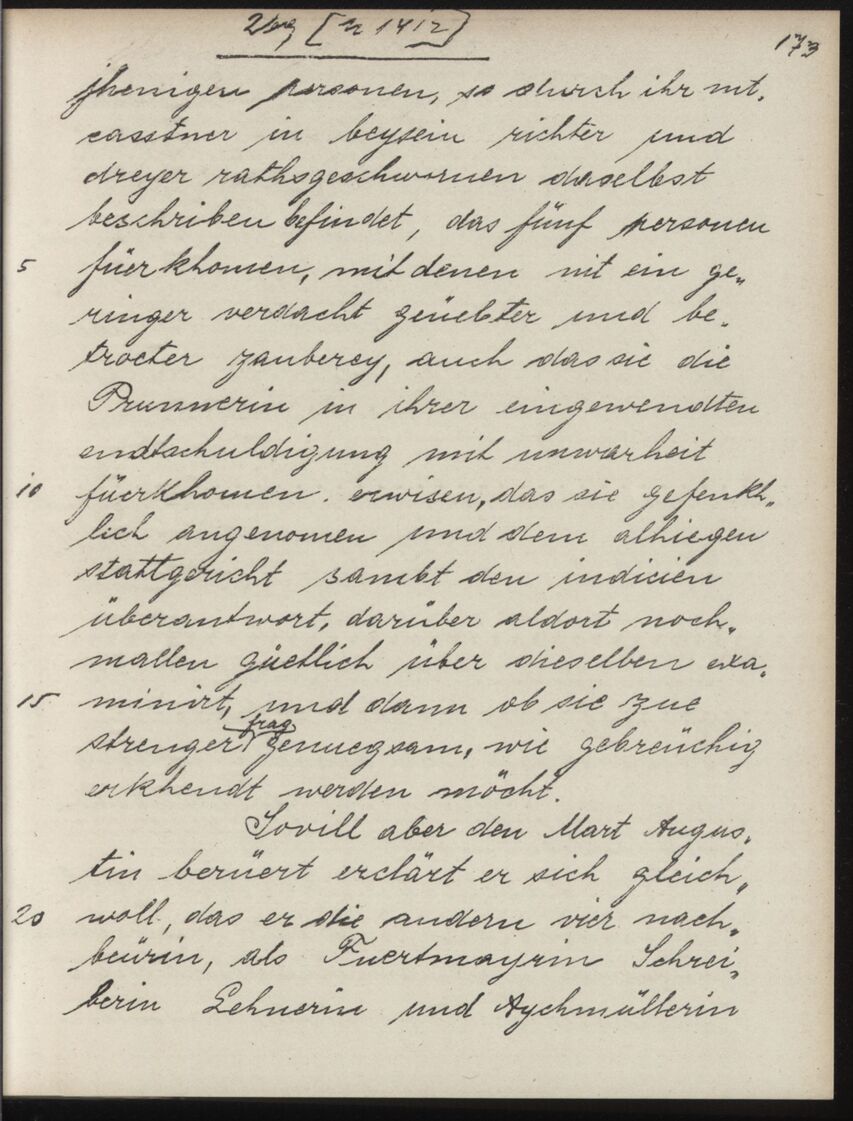 173
jhenigen personen, so durch ihr mt.
casstner in beysein richter und
dreyer rathsgeschwornen daselbst
beschriben befindet, das fünf personen
5 füerkhomen, mit denen nit ein ge„
ringer verdacht geüebter und be„
trocter zauberey, auch das sie die
Prunnerin in ihrer eingewendten
endtschuldigung mit unwarheit
10 füerkhomen. erwisen, das sie gefenkh„
lich angenomen und dem alhiegen
stattgericht sambt den indicien
überantwort, darüber aldort noch„
mallen güetlich über dieselben exa„
15 minirt, und dann ob sie zue
strenger frag genuegsam, wie gebreüchig
erkhendt werden möcht.
Sovill aber den Mart Augus„
tin berüert erclärt er sich gleich„
20 woll, das er die andern vier nach„
beürin, als Fuertmayrin Schrei„
berin Lehnerin und Aychmüllerin